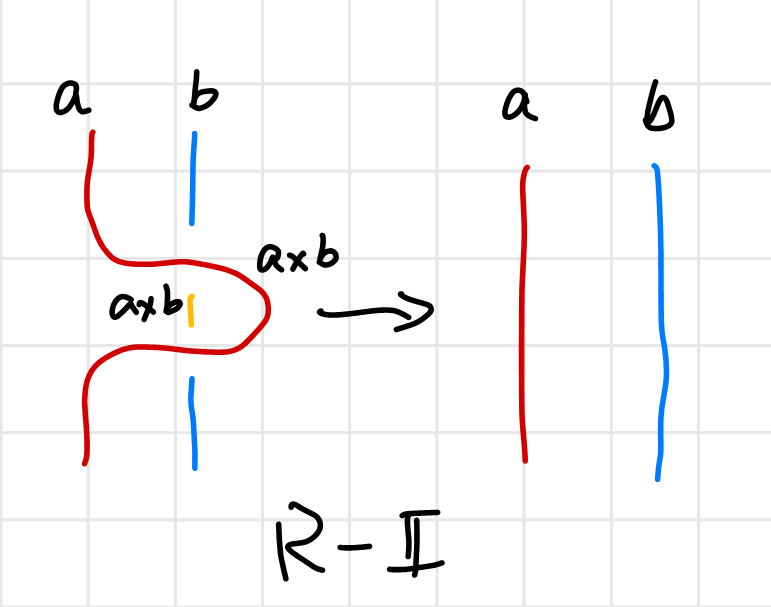 a b
a b
a×b
a×b
R-II